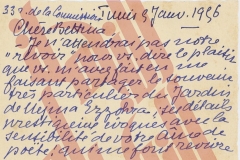 33 r. de la Commission Tunis 9 Janv. 1956
Chère Bettina
- Je n'attendrai pas notre
"revoir" pour vs. dire le plaisir
que vs. m'avez fait en me
faisant partager le souvenir
très particulier du Jardin
de Nejma Ezzohra, les détails
prestigieux évoqués avec la
sensibilité de votre âme de
poète, qui me font revivre